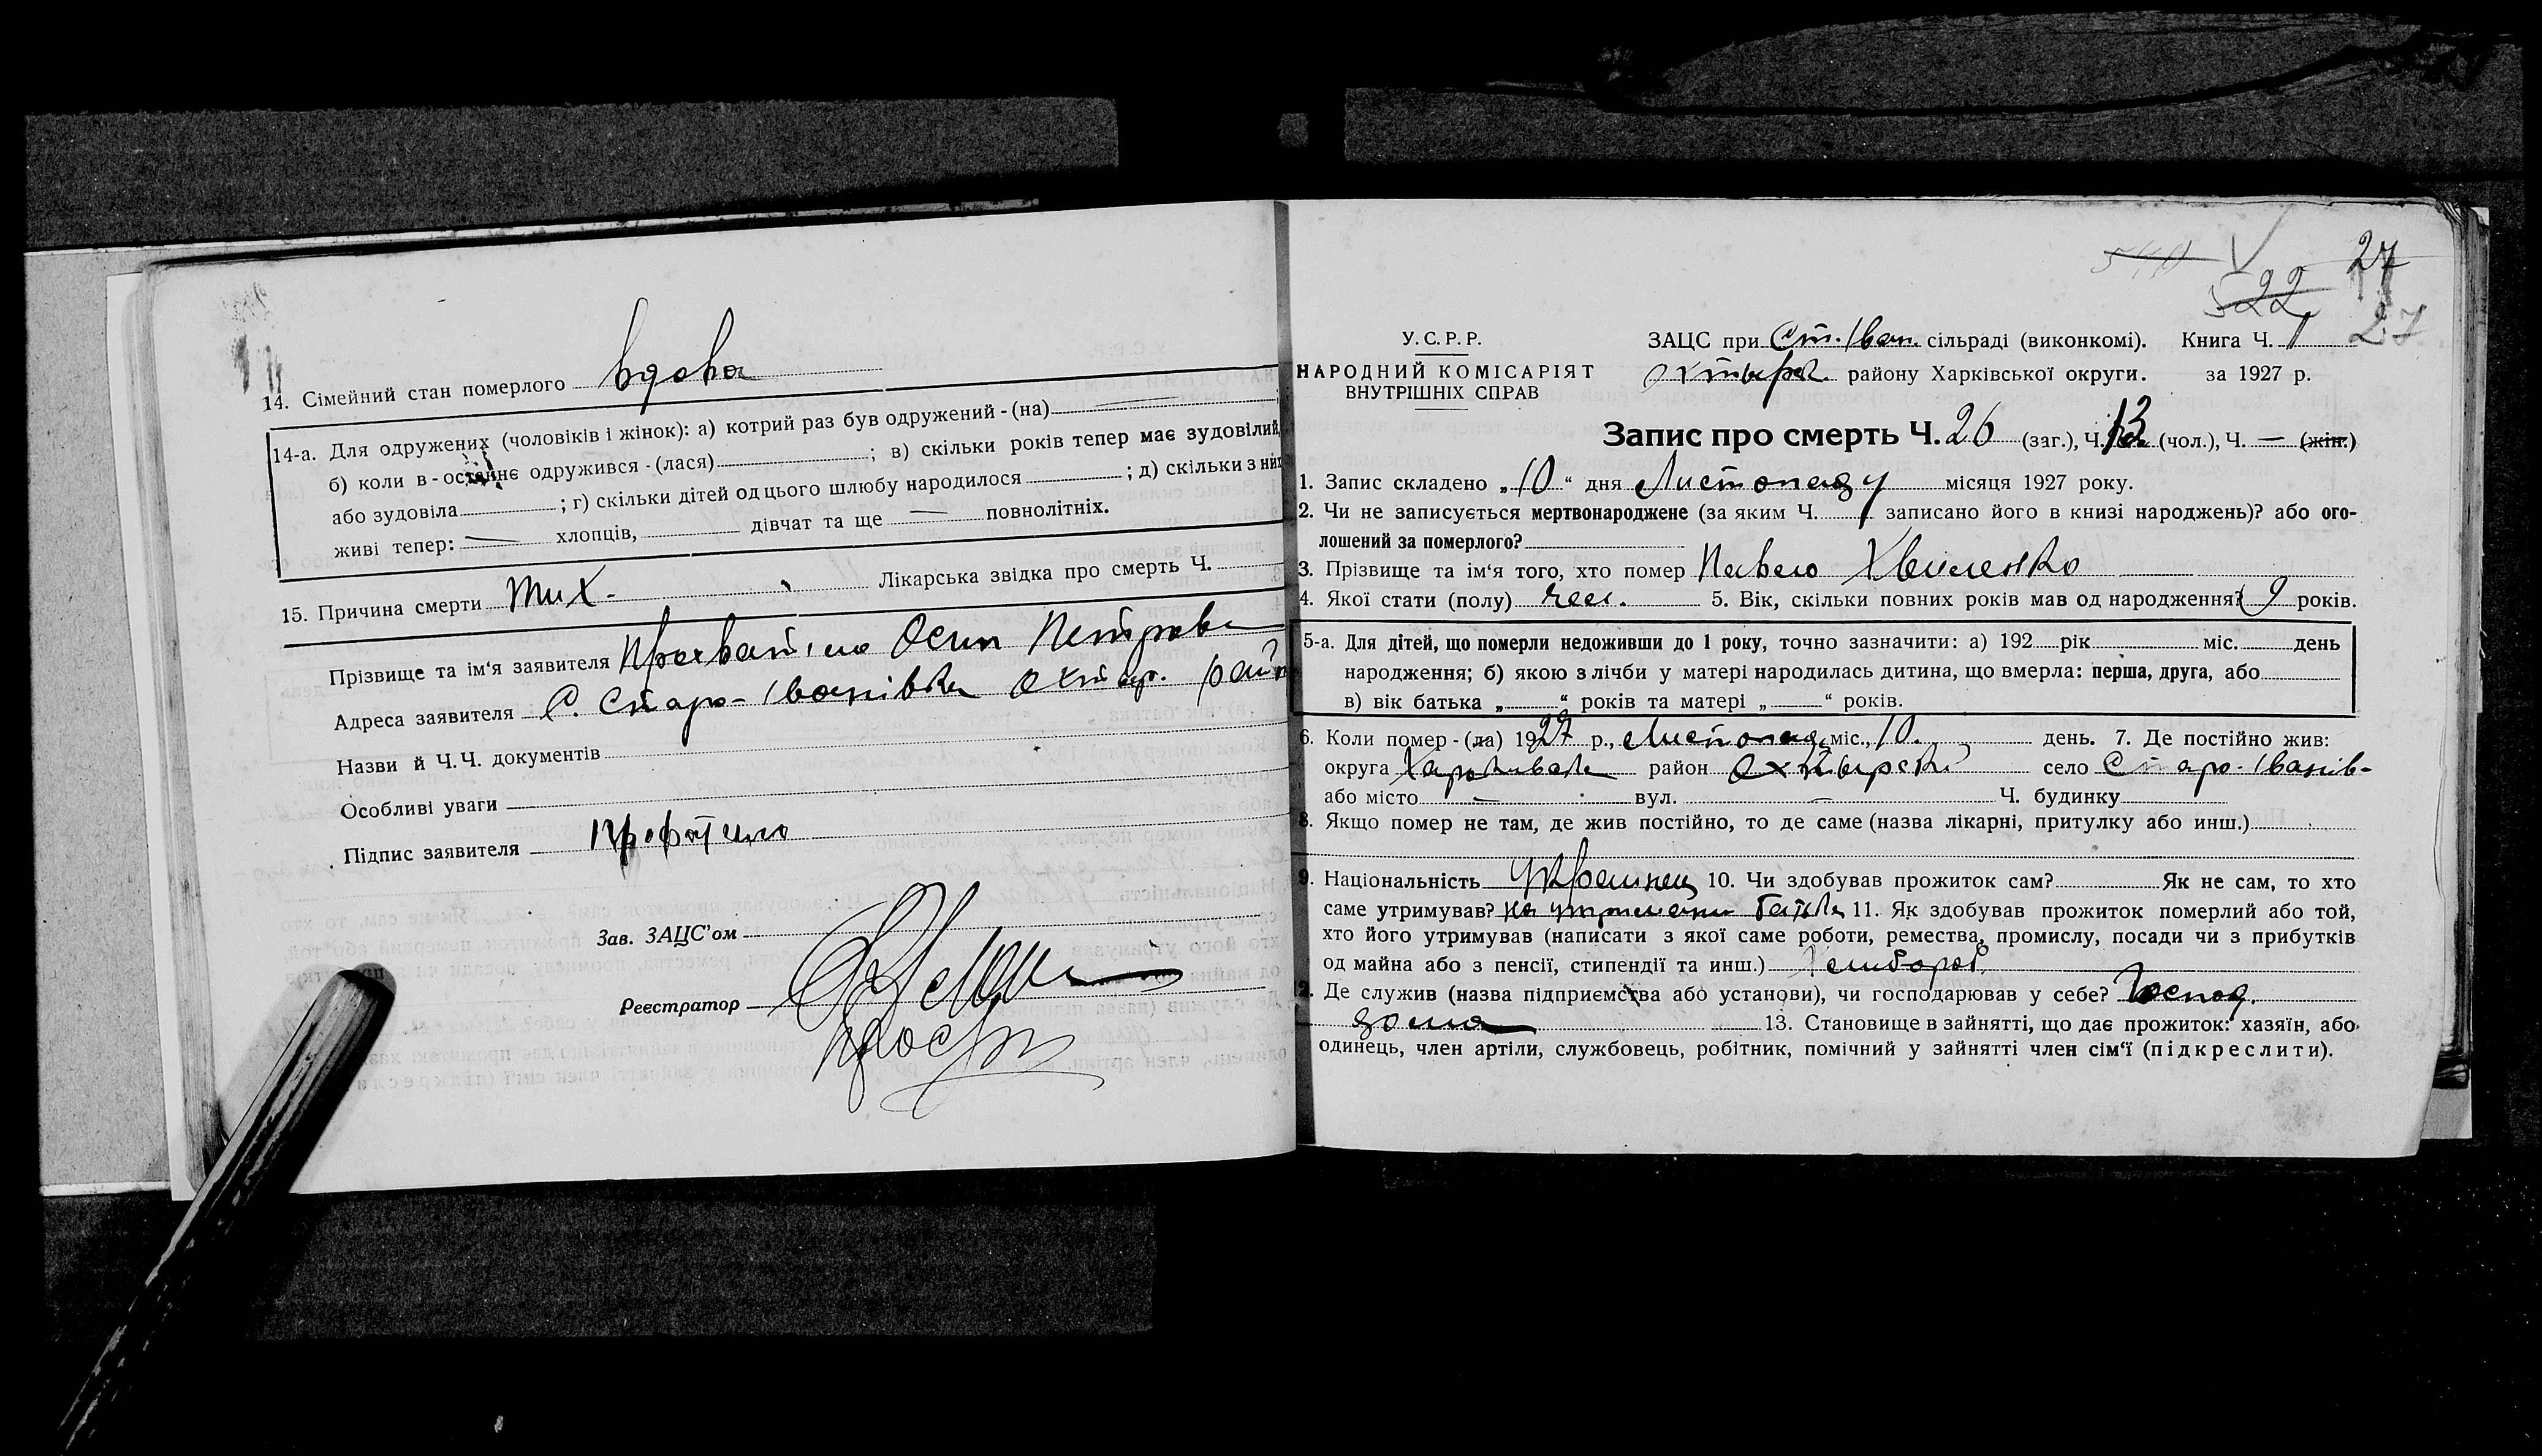 14. Сімейний стан померлого вдова
14-а. Для одружених (чоловіків і жінок): а) котрий раз був одружений - (на)
б) коли в - останнє одружився - (лася) ; в) скільки років тепер має зудовілий,
або зудовіла ; г) скільки дітей од цього шлюбу народилося ; д) скільки з них
живі тепер: — хлопців, дівчат та ще — повнолітніх.
15. Причина смерти тиx- Лікарська звідка про смерть Ч.
Прізвище та ім'я заявителя Осип Петрові
Адреса заявителя С. Старо-Іванівка Охтир. рай
Назви й Ч.Ч. документів
Особливі уваги
Підпис заявителя
Зав. ЗАЦС'ом
Реєстратор
27
522
27
У.С.Р.Р.
НАРОДНИЙ КОМІСАРІЯТ
ВНУТРІШНІХ СПРАВ
ЗАЦС при Ст. Іван. сільраді (виконкомі). Книга Ч. 1
Охтирск. району Харківської округи. за 1927 р.
Запис про смерть Ч. 26 (заг.), Ч. 13 (чол.), Ч. — (жін.)
1. Запис складено „10“ дня Листопаду місяця 1927 року.
2. Чи не записується мертвонароджене (за яким Ч. записано його в книзі народжень)? або ого-
лошений за померлого?
3. Прізвище та ім'я того, хто помер Павло Хвиленко
4. Якої стати (полу) чол. 5. Вік, скільки повних років мав од народження? 9 років.
5-а. Для дітей, що померли недоживши до 1 року, точно зазначити: а) 192 рік міс. день
народження; б) якою з лічби у матері народилась дитина, що вмерла: перша, друга, або
в) вік батька „ “ років та матері „ “ років.
6. Коли помер - (ла) 1927 р., Листопад міс., 10. день. 7. Де постійно жив:
округа Харківськ район Охтирский село Старо-Іванів-
або місто — вул. — Ч. будинку
8. Якщо помер не там, де жив постійно, то де саме (назва лікарні, притулку або инш.)
9. Національність Українец 10. Чи здобував прожиток сам? Як не сам, то хто
саме утримував? на утриманні батьк 11. Як здобував прожиток померлий або той,
хто його утримував (написати з якої саме роботи, ремества, промислу, посади чи з прибутків
од майна або з пенсії, стипендії та инш.) Хлибороб
12. Де служив (назва підприємства або установи), чи господарював у себе? Господ.
дома 13. Становище в зайнятті, що дає прожиток: хазяїн, або
одинець, член артіли, службовець, робітник, помічний у зайнятті член сім'ї (підкреслити).